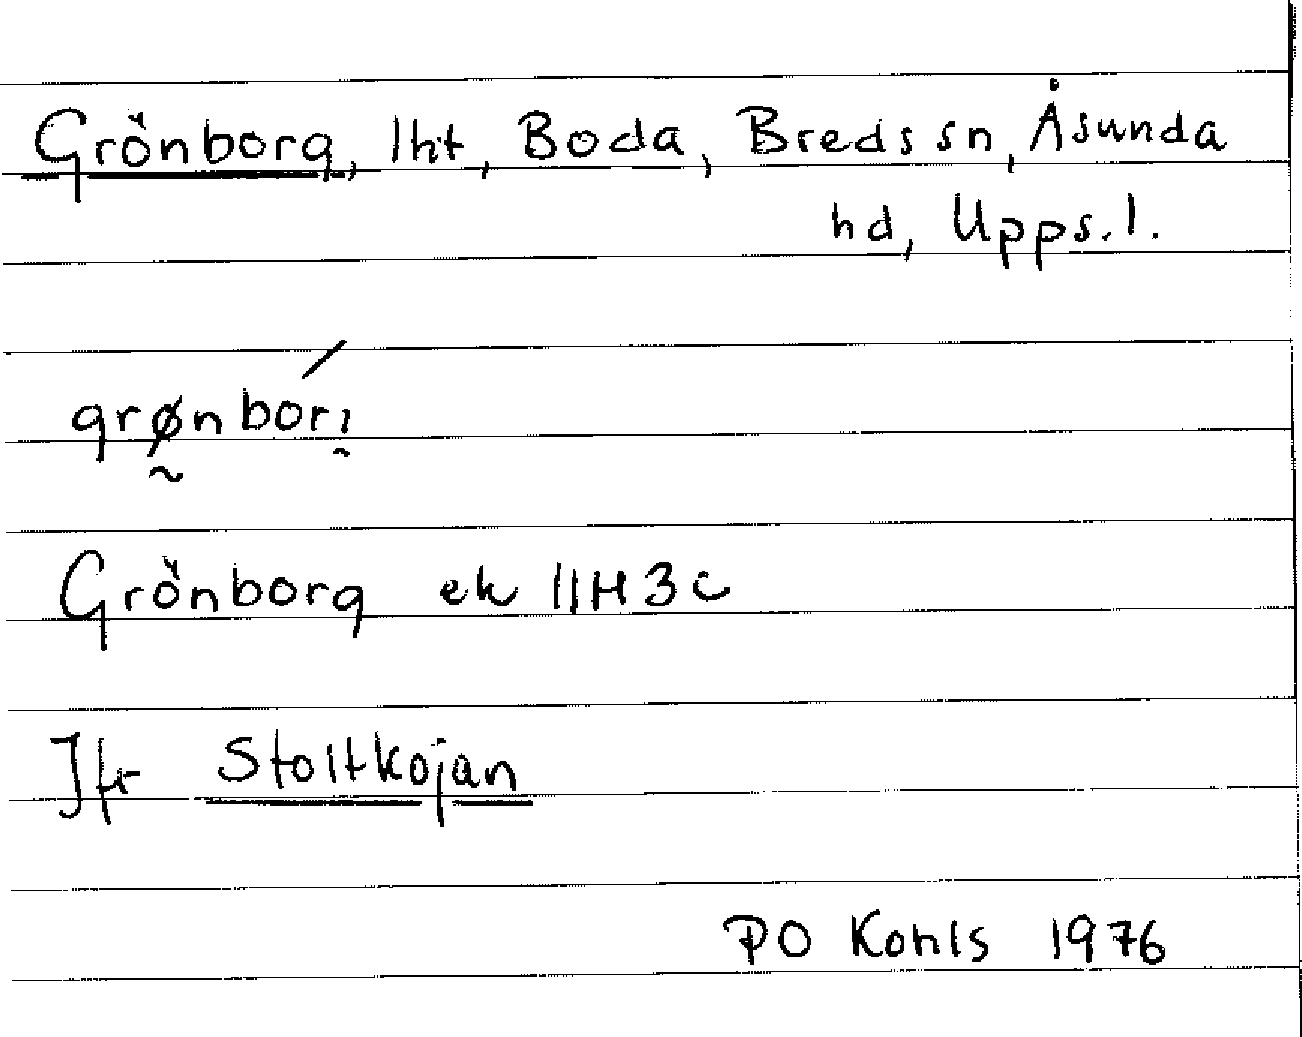 Grönborg, lht, Boda, Breds sn, Åsunda
hd, Upps. l.
grø̰nbórı̯
Grönborg ek 11H3c
Jfr Stoltkojan
PO Kohls 1976